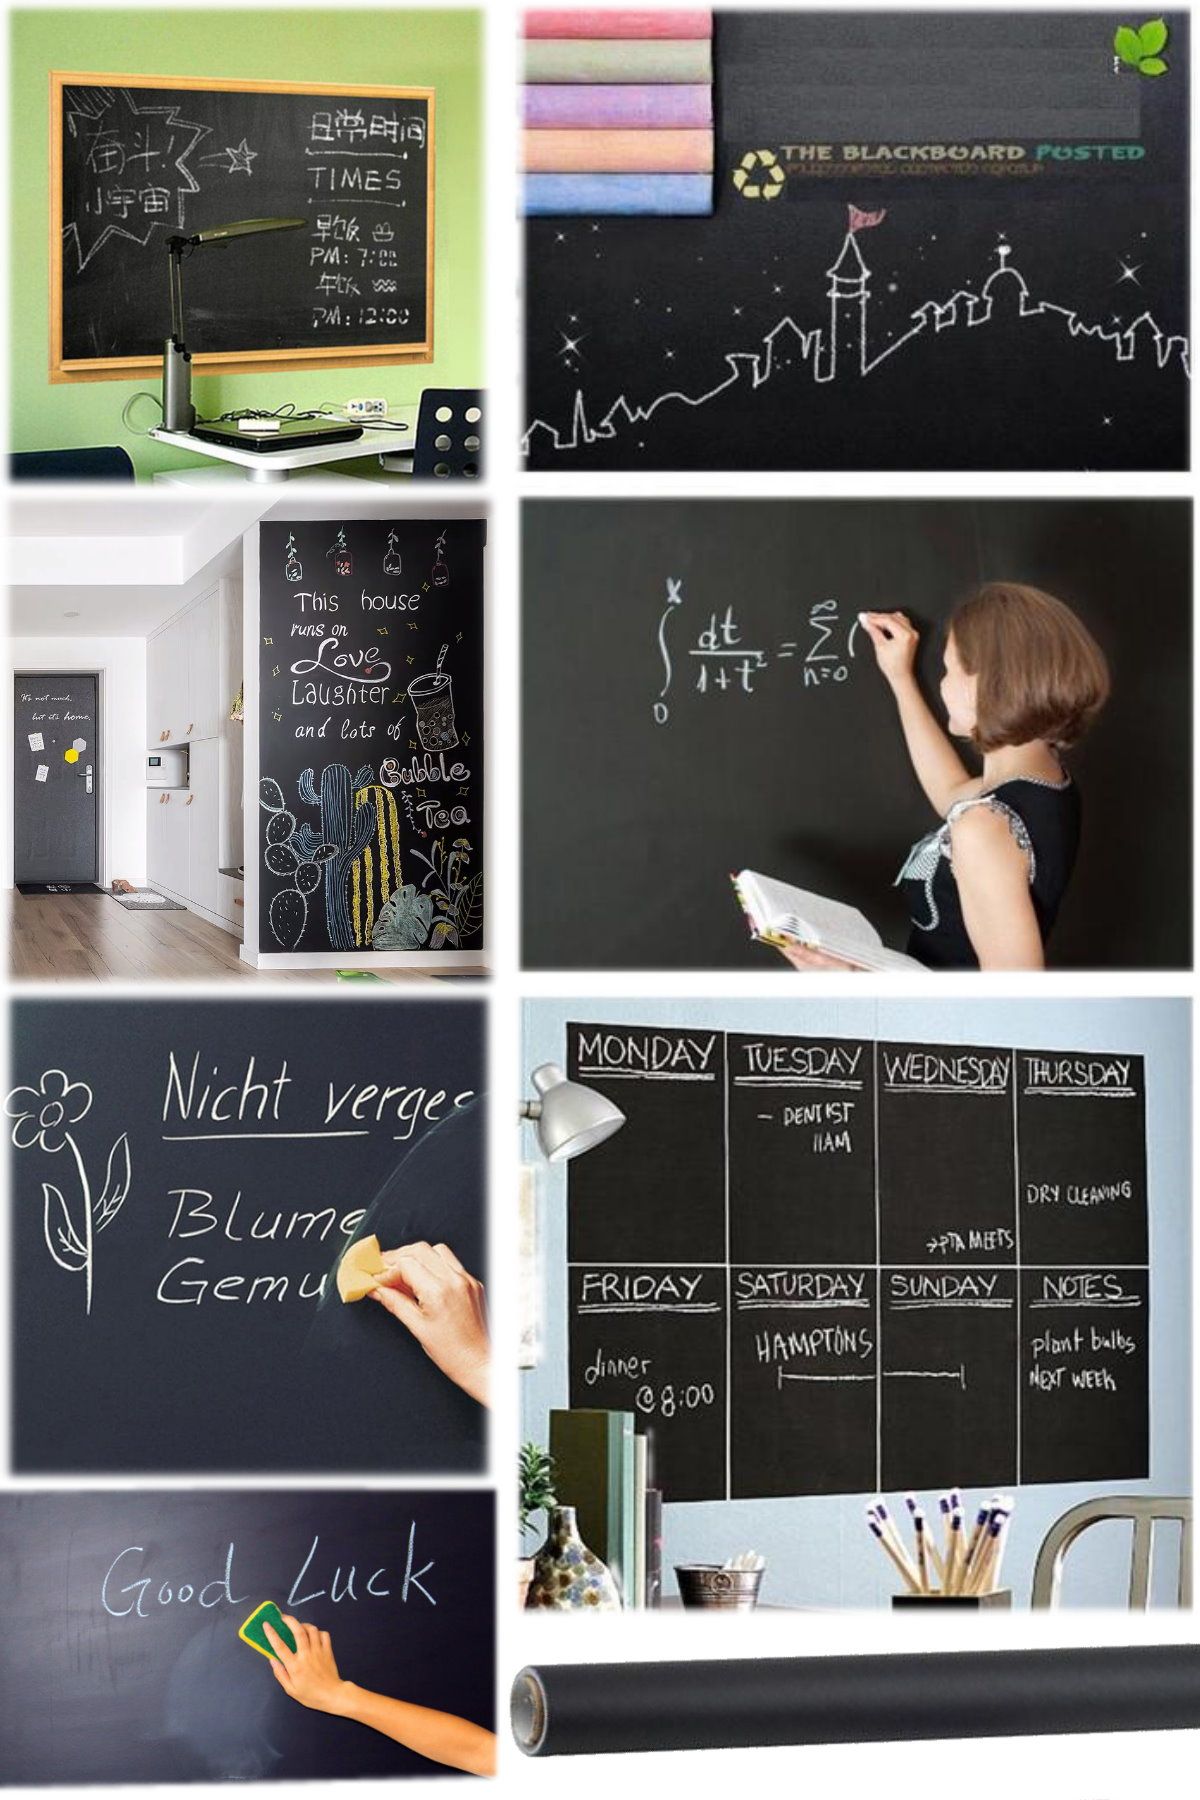 奋斗!
小宇宙
日常时间
TIMES
早饭
PM: 7:00
午饭
PM: 12:00
THE BLACKBOARD POSTED
This house
runs on
Love
Laughter
and lots of
Bubble
Tea
It's not much,
but it's home.
x
∫ dt/1+t² = ∞∑n=0 (
0
Nicht verges
Blume
Gemu
MONDAY
TUESDAY
- DENTIST
11AM
WEDNESDAY
→PTA MEETS
THURSDAY
DRY CLEANING
FRIDAY
dinner
@ 8:00
SATURDAY
HAMPTONS
SUNDAY
NOTES
plant bulbs
NEXT WEEK
Good Luck